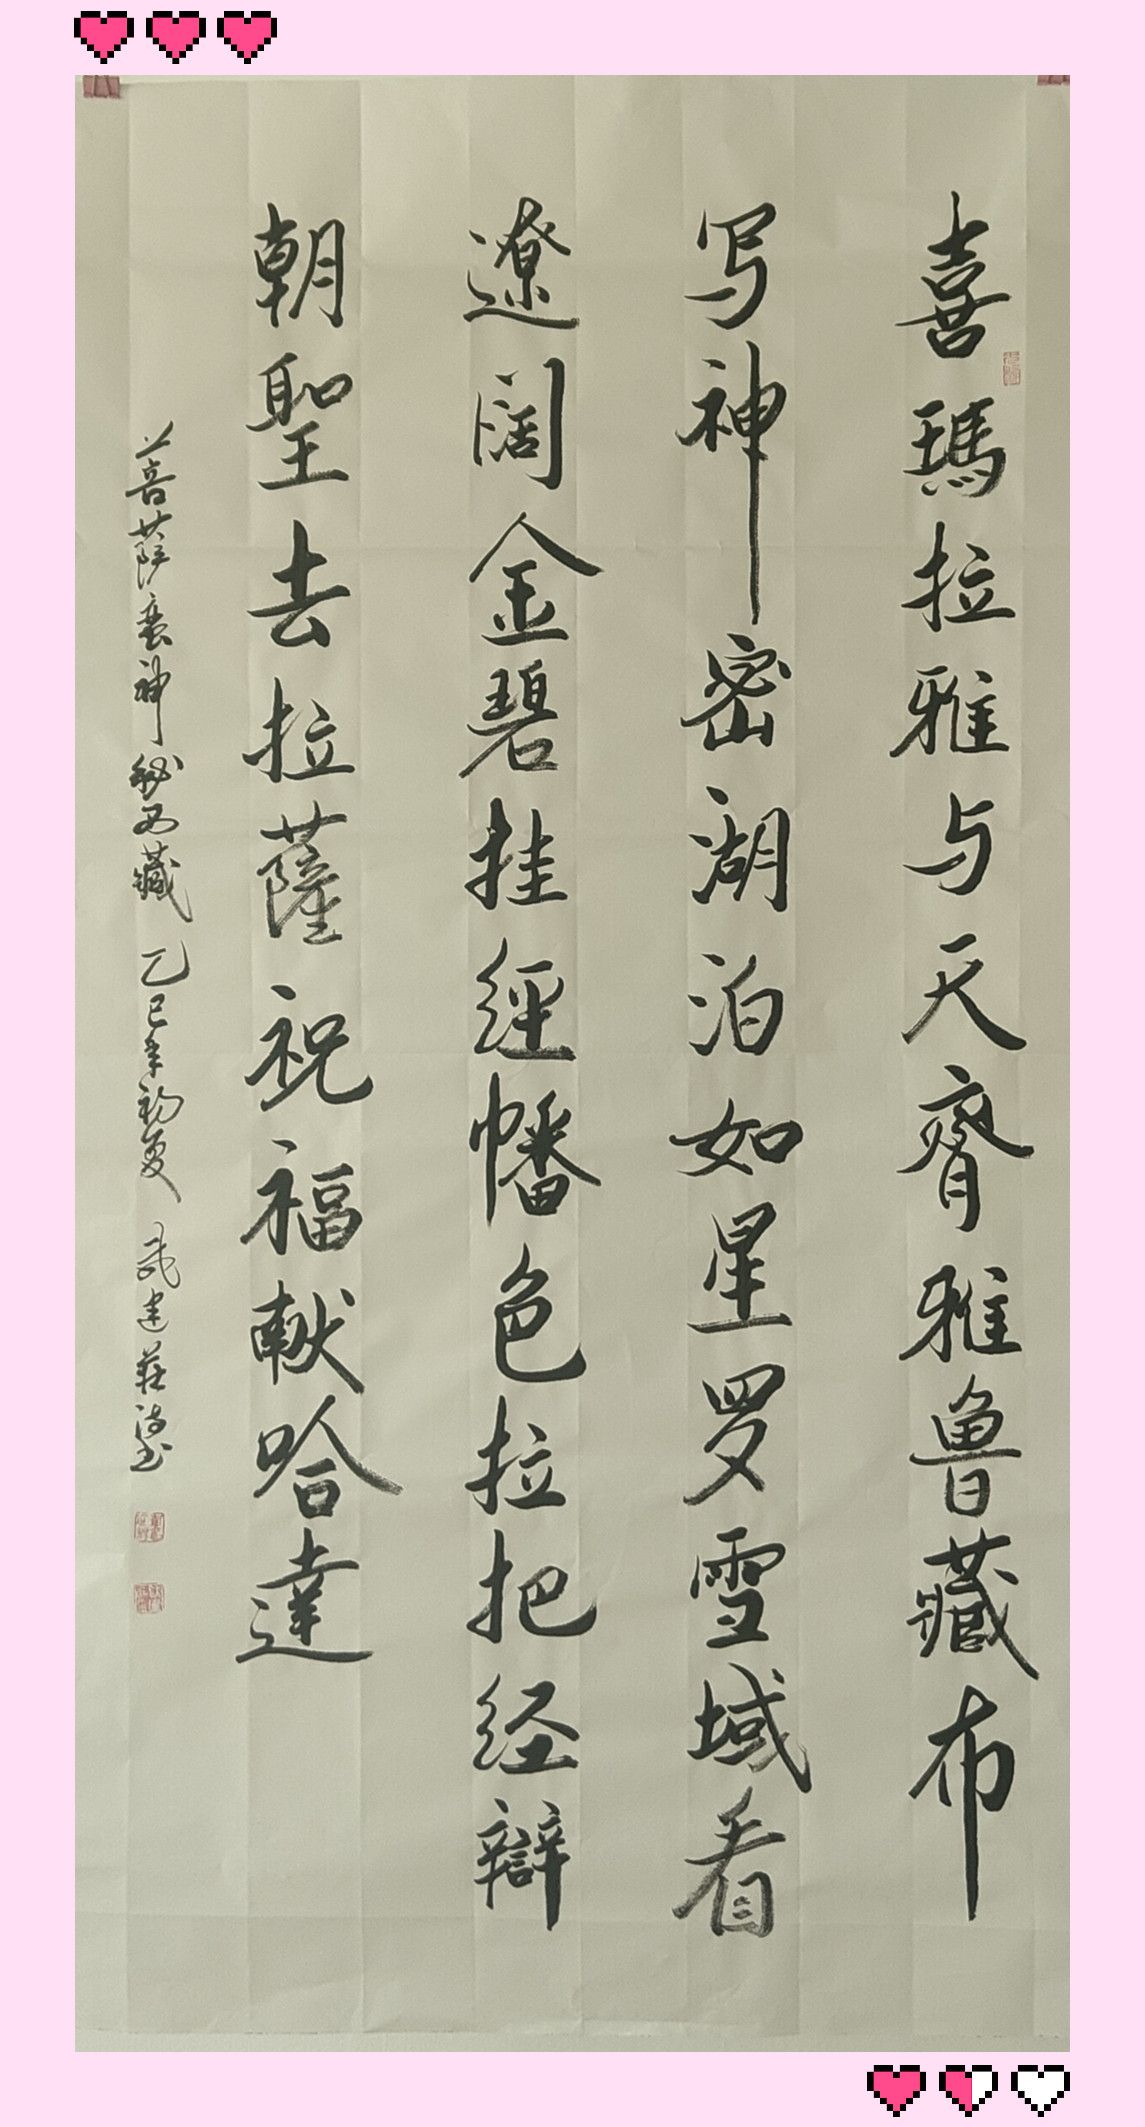 喜瑪拉雅与天齊雅鲁藏布
写神密湖泊如星罗雪域看
遼阔金碧挂經幡色拉把经辯
朝聖去拉薩祝福献哈達
菩萨蛮神秘西藏 乙巳年初夏 武建莊诗书